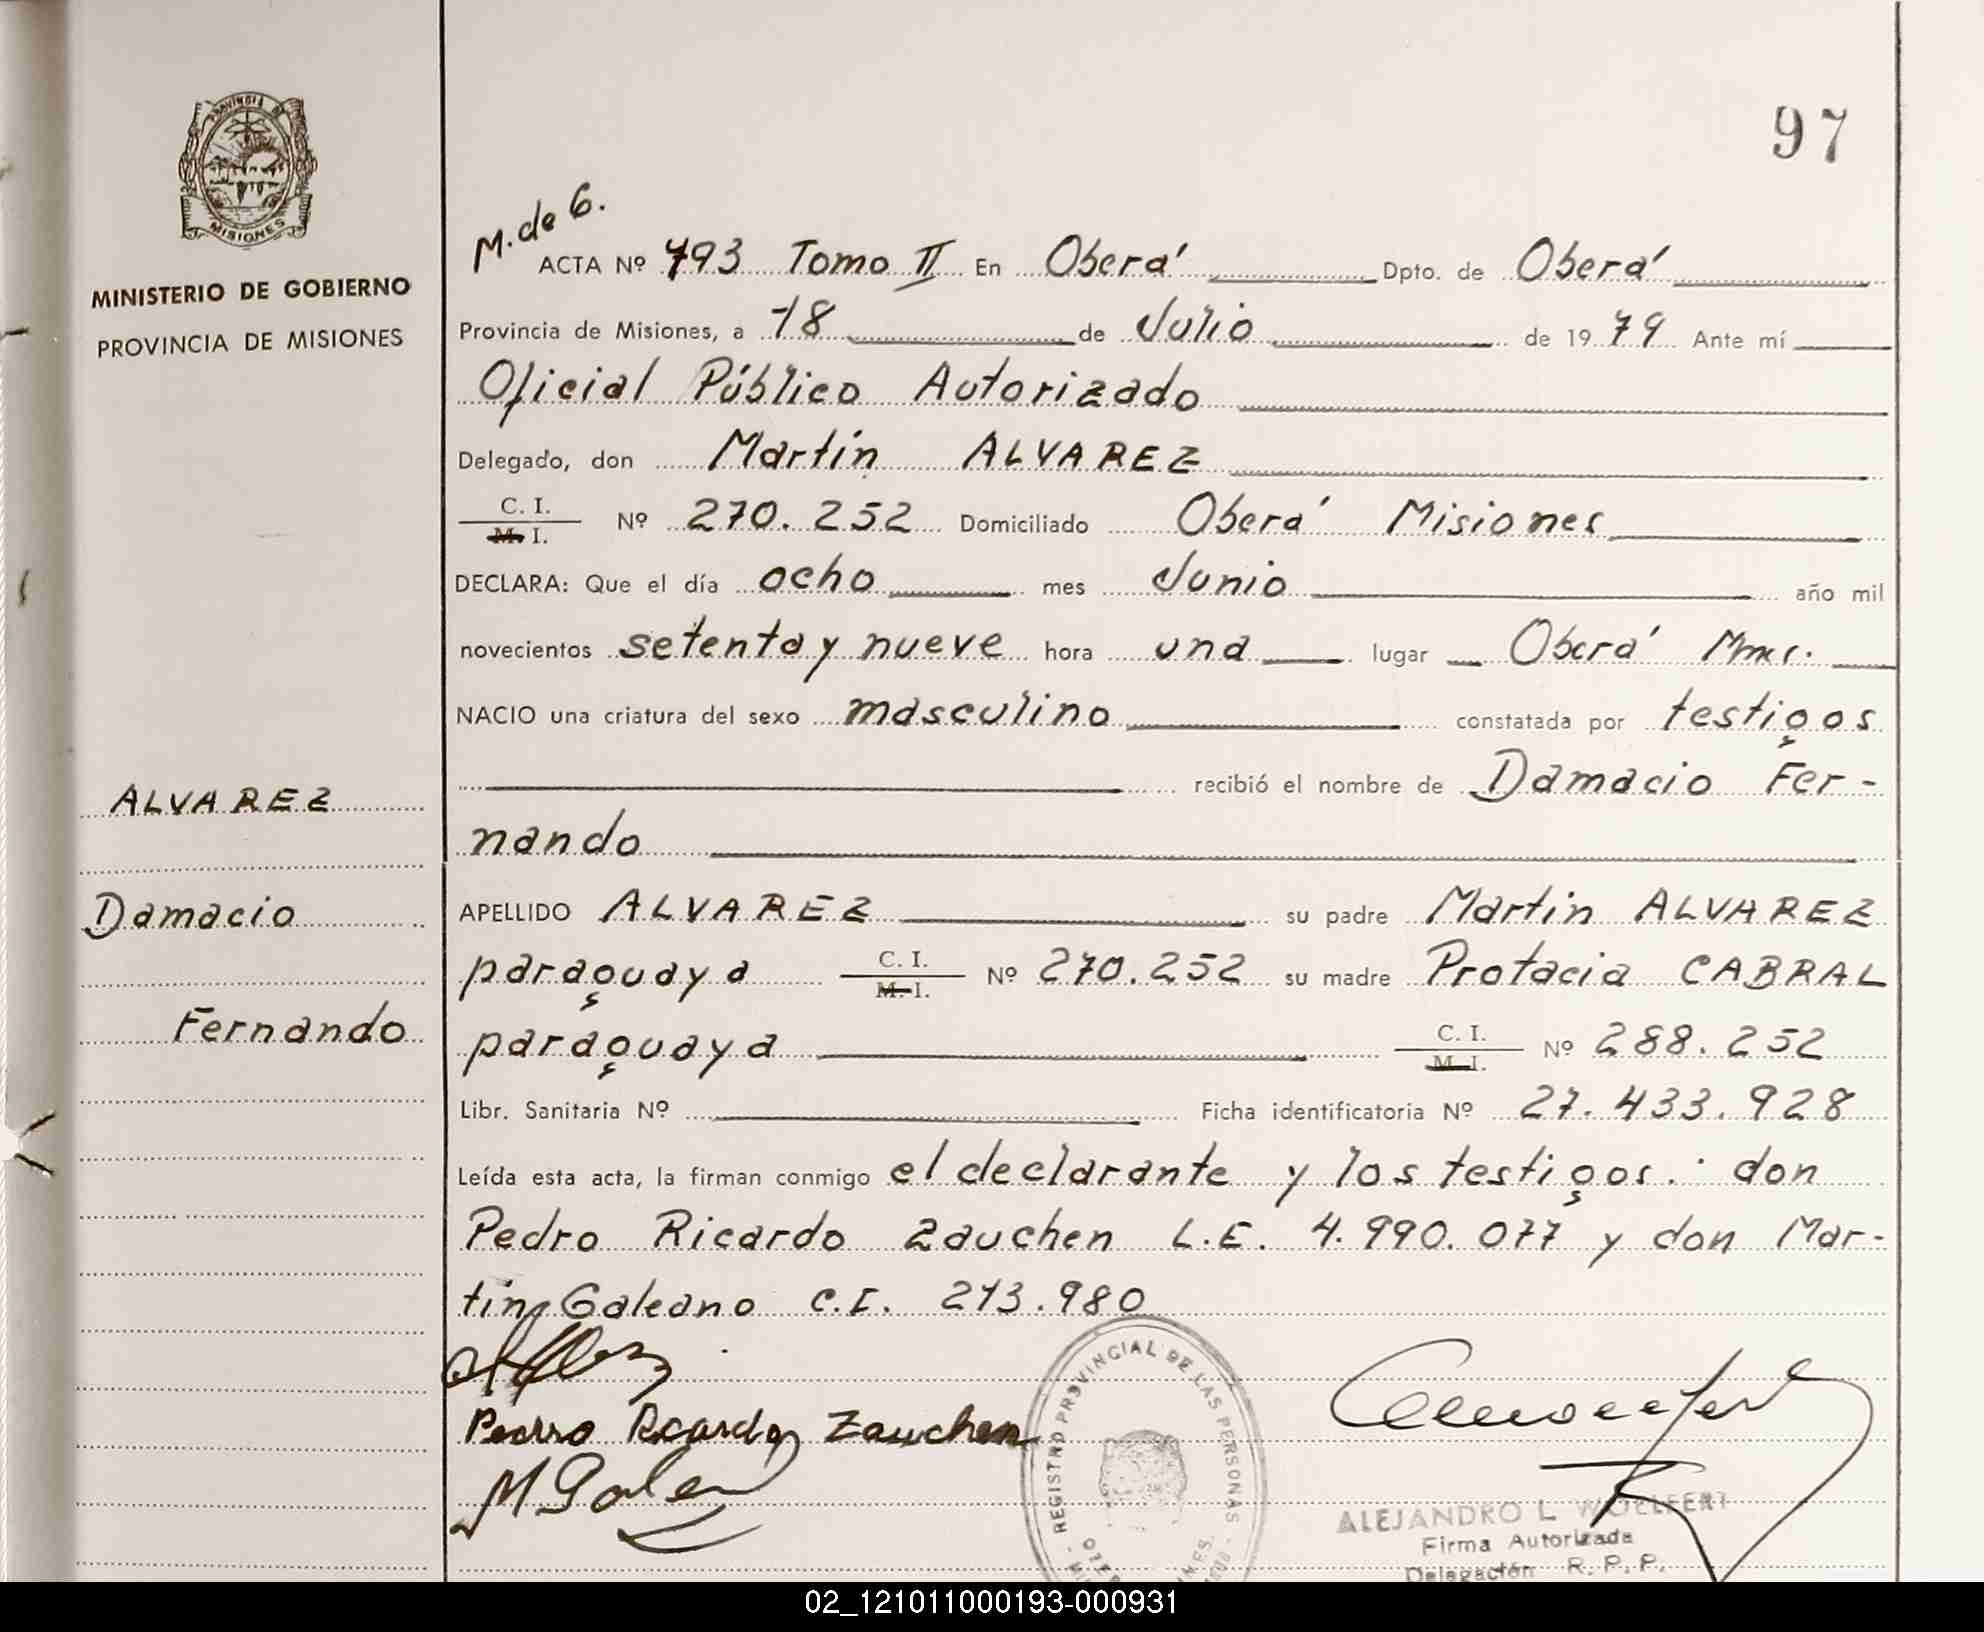 PROVINCIA DE
MISIONES
MINISTERIO DE GOBIERNO
PROVINCIA DE MISIONES
ALVAREZ
Damacio
Fernando
97
M. de G.
ACTA Nº 793 Tomo II En Oberá Dpto. de Oberá
Provincia de Misiones, a 18 de Julio de 1979 Ante mí
Oficial Público Autorizado
Delegado, don Martín ALVAREZ
C. I.
M. I. Nº 270.252 Domiciliado Oberá Misiones
DECLARA: Que el día ocho mes Junio año mil
novecientos setenta y nueve hora una lugar Oberá Mnes.
NACIO una criatura del sexo masculino constatada por testigos
recibió el nombre de Damacio Fer-
nando
APELLIDO ALVAREZ su padre Martín ALVAREZ
paraguaya C. I.
M. I. Nº 270.252 su madre Protacia CABRAL
paraguaya C. I.
M. I. Nº 288.252
Libr. Sanitaria Nº Ficha identificatoria Nº 27.433.928
Leída esta acta, la firman conmigo el declarante y los testigos: don
Pedro Ricardo Zauchen L.E. 4.990.077 y don Mar-
tín Galeano C.I. 213.980
Pedro Ricardo Zauchen
REGISTRO PROVINCIAL DE LAS PERSONAS
ALEJANDRO L. WOELFERT
Firma Autorizada
Delegación R. P. P.
02_121011000193-000931